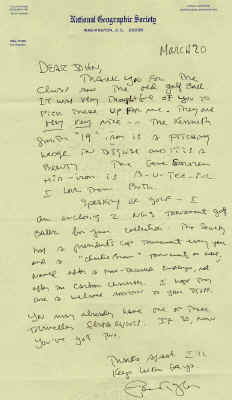 National Geographic Society
WASHINGTON, D.C. 20036
MARCH 20
DEAR JOHN,
THANK YOU FOR THE
CLUBS AND THE OLD GOLF BALL
IT WAS VERY THOUGHTFUL OF YOU TO
PICK THESE UP FOR ME. THEY ARE
VERY VERY NICE -- THE KENNETH
SMITH "19" IRON IS A PITCHING
WEDGE IN DISGUISE AND IT IS A
BEAUTY. THE GENE SARAZEN
IRON IS B-U-T-E-FUL
I LOVE THEM BOTH.
SPEAKING OF GOLF - I
AM ENCLOSING 2 NGS TOURNAMENT GOLF
BALLS FOR YOUR COLLECTION. THE SOCIETY
HAS A PRESIDENT'S CUP TOURNAMENT EVERY YEAR
AND A "CHARLIE BROWN" TOURNAMENT
NAMED AFTER A EMPLOYEE, NOT
AFTER THE CARTOON CHARACTER. I HOPE THEY
ARE A WELCOME ADDITION TO YOUR
YOU MAY ALREADY HAVE ONE OF THESE
IF SO, NOW
YOU'VE GOT TWO.
THANKS AGAIN & I'LL
KEEP